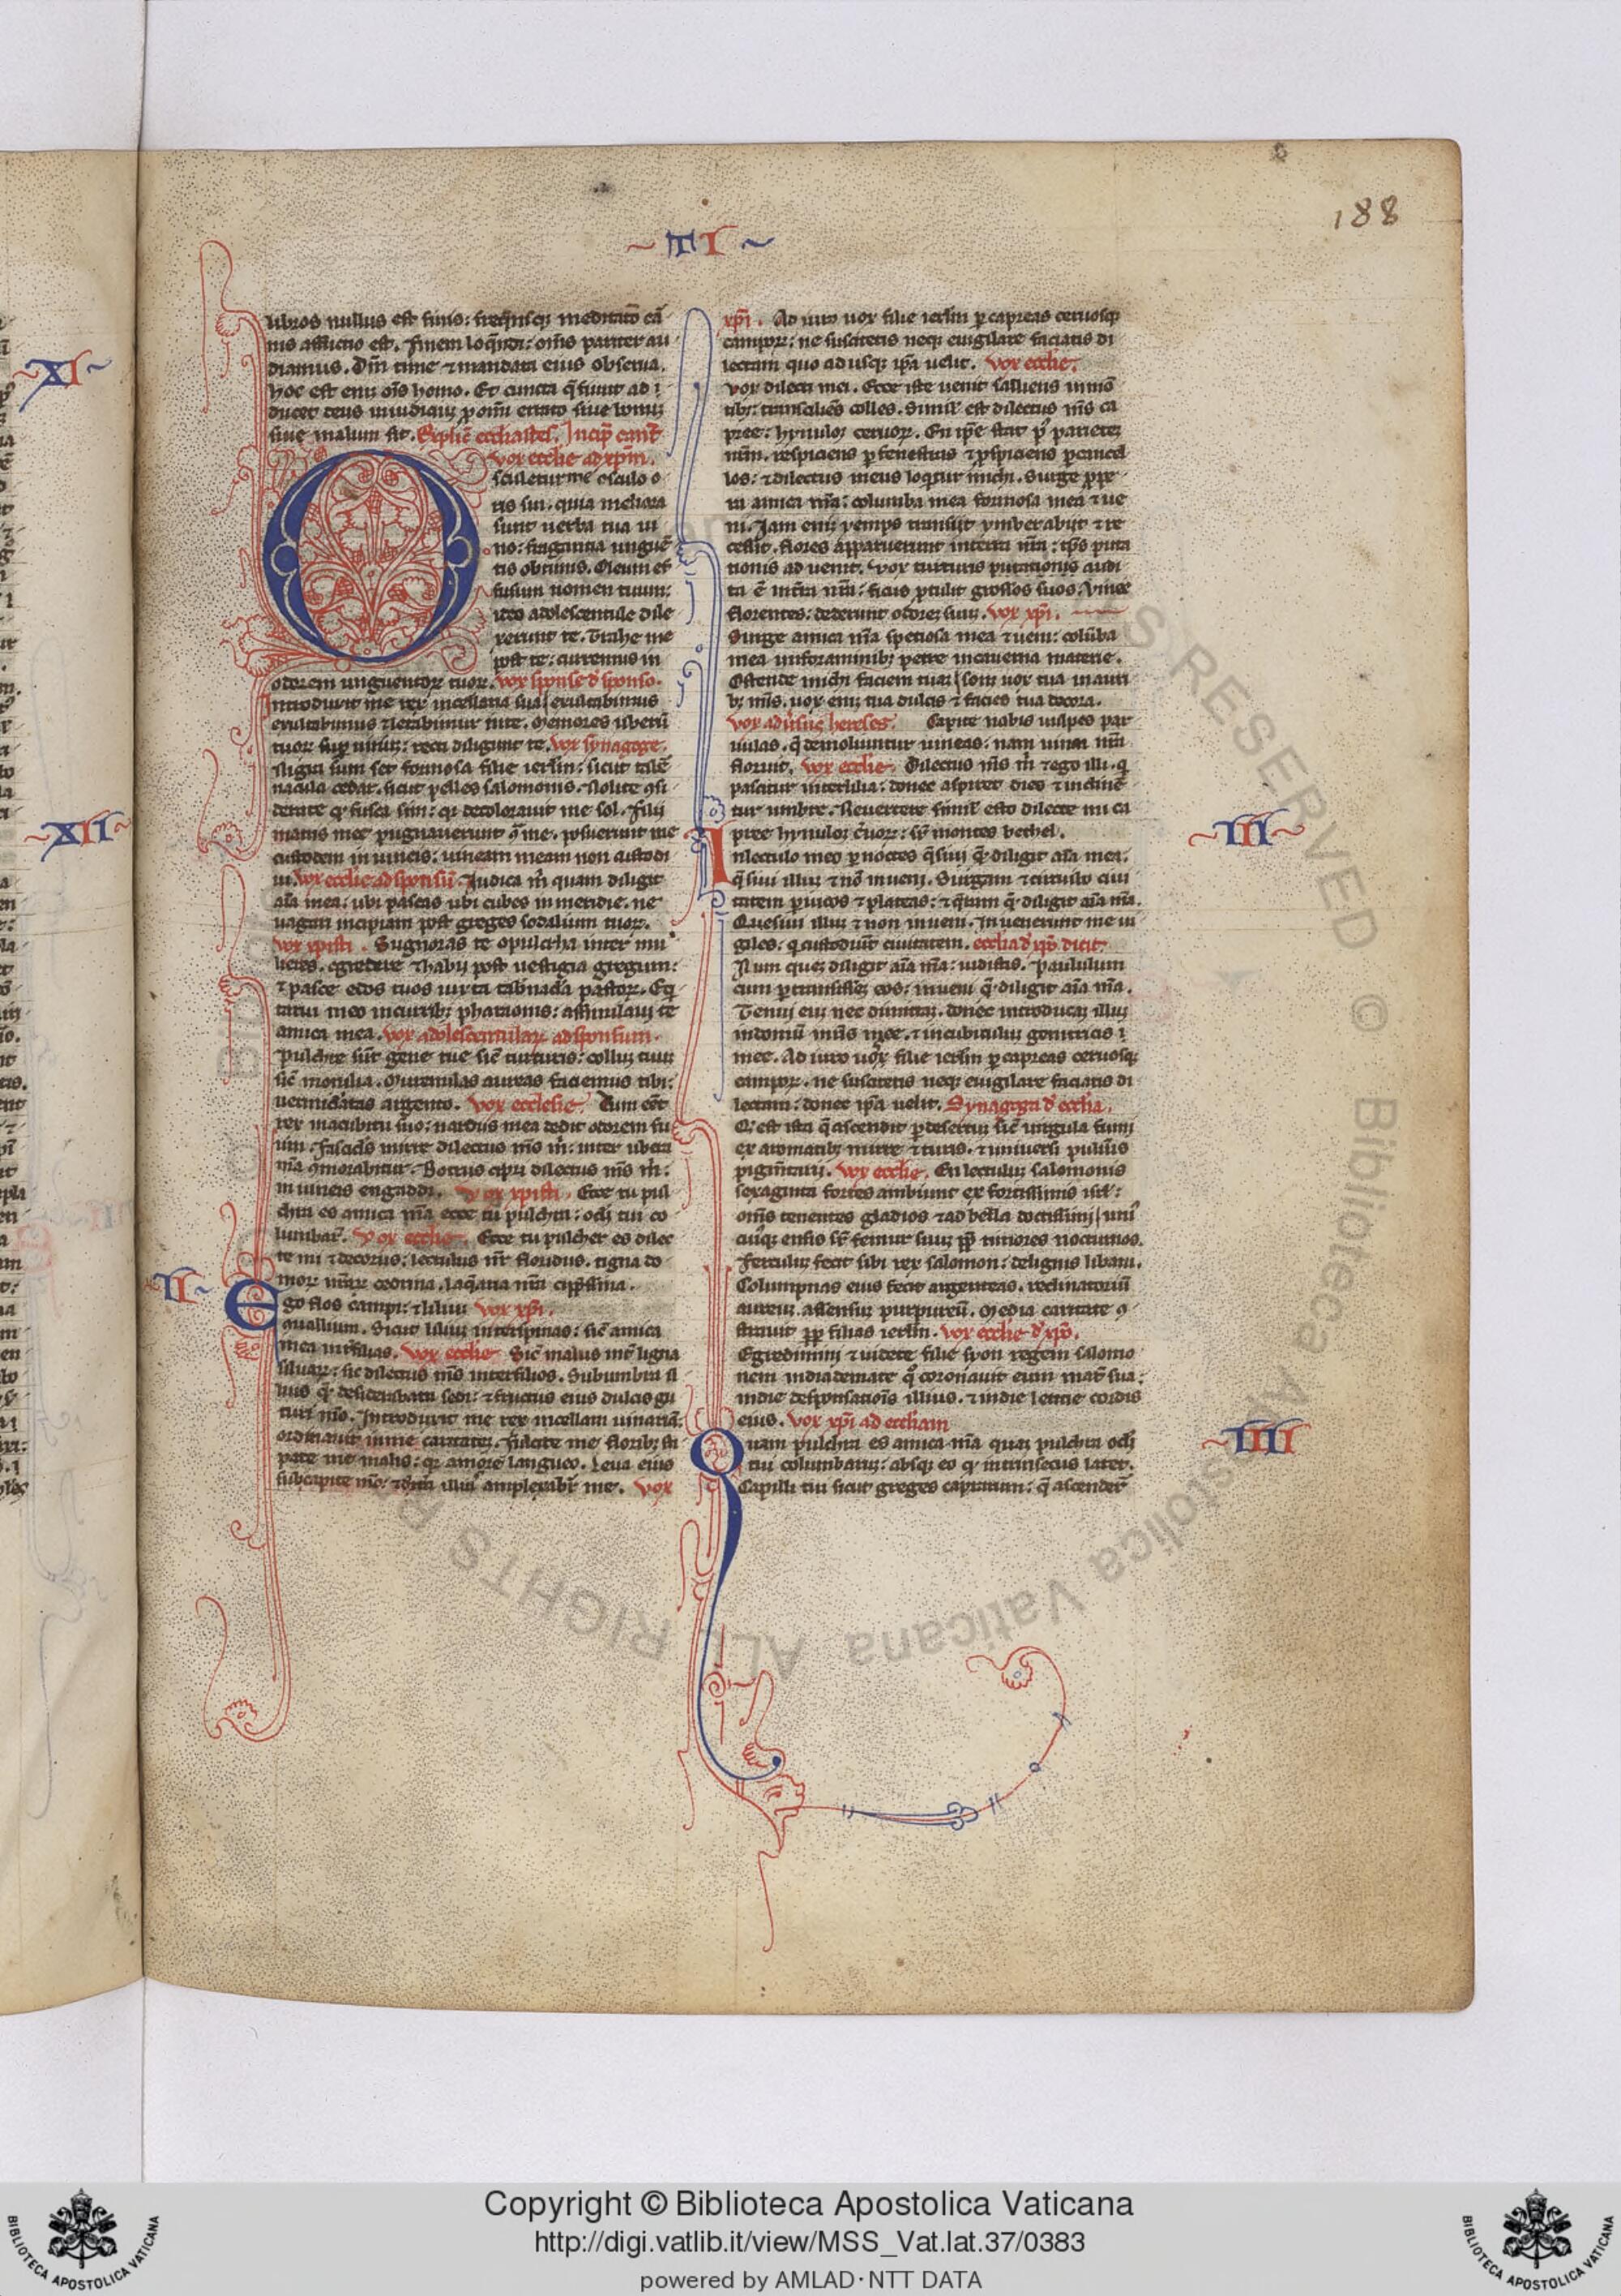 188
~ III ~
libros nullus est finis: freqnsq; meditatō ca
nis afflictio est. Finem loqndi: oms pariter au
diamus. Dm time ⁊ mandata eius obserua.
hoc est eni ois homo. Et cuncta q̄ fiunt ad
ducet deus in iudiciuz ꝓ omi errato siue bonuz
siue malum sit. Explic ecclīastes. Incip cant
vox ecclie ad xpm.
Osculetur me osculo o
ris sui. quia meliora
sunt ubera tua ui
no: fragrantia ungue
tis obtimis. Oleum ef
fusum nomen tuum:
ideo adolescentule dile
xerunt te. Trahe me
post te: curremus in
odorem unguentoꝝ tuoꝝ. vox sponse d sponso.
Introduxit me rex in cellaria sua exultabimus
exultabimus ⁊ letabimur in te. Memores uberū
tuoꝝ sup uinuz: recti diligunt te. vox synagoge.
Nigra sum set formosa filie ierlm: sicut
nacula cedar. sicut pelles salomonis. Nolite
derare ꝙ fusca sim: qr decolorauit me sol. Filii
matris mee pugnauerunt me. posuerunt me
custodem in uineis: uineam meam non custodi
ui. vox ecclie ad sponsu. Indica m quem diligit
aia mea: ubi pascas ubi cubes in meridie. ne
uagari incipiam post greges sodalium tuoꝝ.
vox xpisti. Si ignoras te o pulchra inter mu
lieres. egredere ⁊ habii post uestigia gregum:
⁊ pasce edos tuos iuxta tabnacla pastoꝝ. Eq
tatui meo in curribꝫ pharaonis: assimilaui te
amica mea. vox adolescentulaꝝ ad sponsum.
Pulchre sut gene tue sic turturis: colluz tuuz
sic monilia. Murenulas aureas faciemus tibi:
uermiculatas argento. vox ecclesie. Dum ēet
rex in accubitu suo: nardus mea dedit odorem su
um. Fasciclus mirre dilectus ms m: inter ubera
ma cmorabitur. Botrus cipri dilectus ms m:
in uineis engaddi. vox xpisti. Ecce tu pul
chra es amica ma ecce tu pulchra: oclj tui co
lumbaꝝ. vox ecclie. Ecce tu pulcher es dilec
te mi ⁊ decorus: lectulus nr floridus. tigna do
moꝝ nraꝝ cedrina. laq̄aria nra cipssina.
II
Ego flos campi: ⁊ liliuz vox xpi.
quallium. Sicut liliuz inter spinas: sic amica
mea int filias. vox ecclie. Sic malus int ligna
siluaꝝ: sic dilectus ms inter filios. Sub umbra il
lius q desideraba sedi: ⁊ fructus eius dulcis gu
turi mo. Introduxit me rex in cellam uinaria:
ordinauit in me caritatez. Fulcite me floribꝫ sti
pate me malis: qr amore langueo. Leua eius
sub capite mo: ⁊ illius amplexabr me. vox
xpi. Ad iuro uos filie ierlm p capreas ceruosq
campoꝝ: ne suscitetis neqꝫ euigilare faciatis di
lectam quo adusqꝫ ipa uelit. vox ecclie.
Vox dilecti mei. Ecce iste uenit saliens in mō
tibꝫ: transiliēs colles. Simil est dilectus ms ca
pree: hynuloqꝫ ceruoꝝ. En ipe stat p parietez
nrm. respiciens p fenestras ⁊ pspiciens p cancel
los: ⁊ dilectus meus loqtur michi. Surge ppe
ra amica ma: columba mea formosa mea ⁊ ue
ni. Iam eni yemps transiit ymber abijt ⁊ re
cessit. flores apparuerunt in terra nra: tps puta
tionis aduenit. Vox turturis putationis audi
ta ē in tra nra: ficus ptulit grossos suos. Vinee
florentes: dederunt odorez suuz. vox xpi.
Surge amica ma speciosa mea ⁊ ueni: colūba
mea in foraminibꝫ petre in cauerna materie.
Ostende michi faciem tuaz sonet uox tua in auri
bꝫ mis. uox eni tua dulcis ⁊ facies tua decora.
vox adusus hereses. Capite nobis uulpes par
uulas. q demoliuntur uineas: nam uinea nra
floruit. vox ecclie. Dilectus ms m ⁊ ego illi. q
pascitur inter lilia: donec aspiret dies ⁊ incline
tur umbre. Reuertere simil esto dilecte mi ca
pree hynuloqꝫ ceruoꝝ: sup montes bethel.
III
In lectulo meo p noctes q̄siui q diligit aia mea:
q̄siui illuz ⁊ nō inueni. Surgam ⁊ circuibo ciui
tatem p uicos ⁊ plateas: ⁊ q̄ram q diligit aia ma.
Quesiui illuz ⁊ non inueni. Inuenerunt me ui
giles: q custodiūt ciuitatem. ecclia d xpo dicit
Num quez diligit aia ma: uidistis. Paululum
cum ptransissez eos: inueni q diligit aia ma.
Tenui euz nec dimittaz. donec introducaz illuz
in domū mris mee. ⁊ in cubiculuz genitricis
mee. Ad iuro uos filie ierlm p capreas ceruosqꝫ
campoꝝ. ne suscitetis neqꝫ euigilare faciatis di
lectam: donec ipa uelit. Synagoga d ecclia.
Q est ista q ascendit p desertuz sic uirgula fumi
ex aromatibꝫ mirre ⁊ turis. ⁊ uniuersi puluis
pigmtarij. vox ecclie. En lectuluz salomonis
sexaginta fortes ambiunt ex fortissimis isrl:
oms tenentes gladios ⁊ ad bella doctissimi uni
cuiqꝫ ensis sr femur suuz ppt timores nocturnos.
Ferculuz fecit sibi rex salomon: de lignis libani.
Columpnas eius fecit argenteas. reclinatoriū
aureuz. ascensuz purpureū. Media caritate
strauit ppt filias ierlm. vox ecclie d xpo.
Egredimini ⁊ uidete filie syon regem salomo
nem in diademate quo coronauit eum mat sua:
in die desponsatiois illius. ⁊ in die letitie cordis
eius. vox xpi ad eccliam
IIII
Quam pulchra es amica ma quaz pulchra oclj
tui columbaruz: absqꝫ eo ꝙ intrinsecus latet.
Capilli tui sicut greges caprarum: q̄ ascender
XI
XII
Copyright © Biblioteca Apostolica Vaticana
http://digi.vatlib.it/view/MSS_Vat.lat.37/0383
powered by AMLAD·NTT DATA
BIBLIOTECA APOSTOLICA VATICANA
BIBLIOTECA APOSTOLICA VATICANA
© Biblioteca Apostolica Vaticana ALL RIGHTS RESERVED